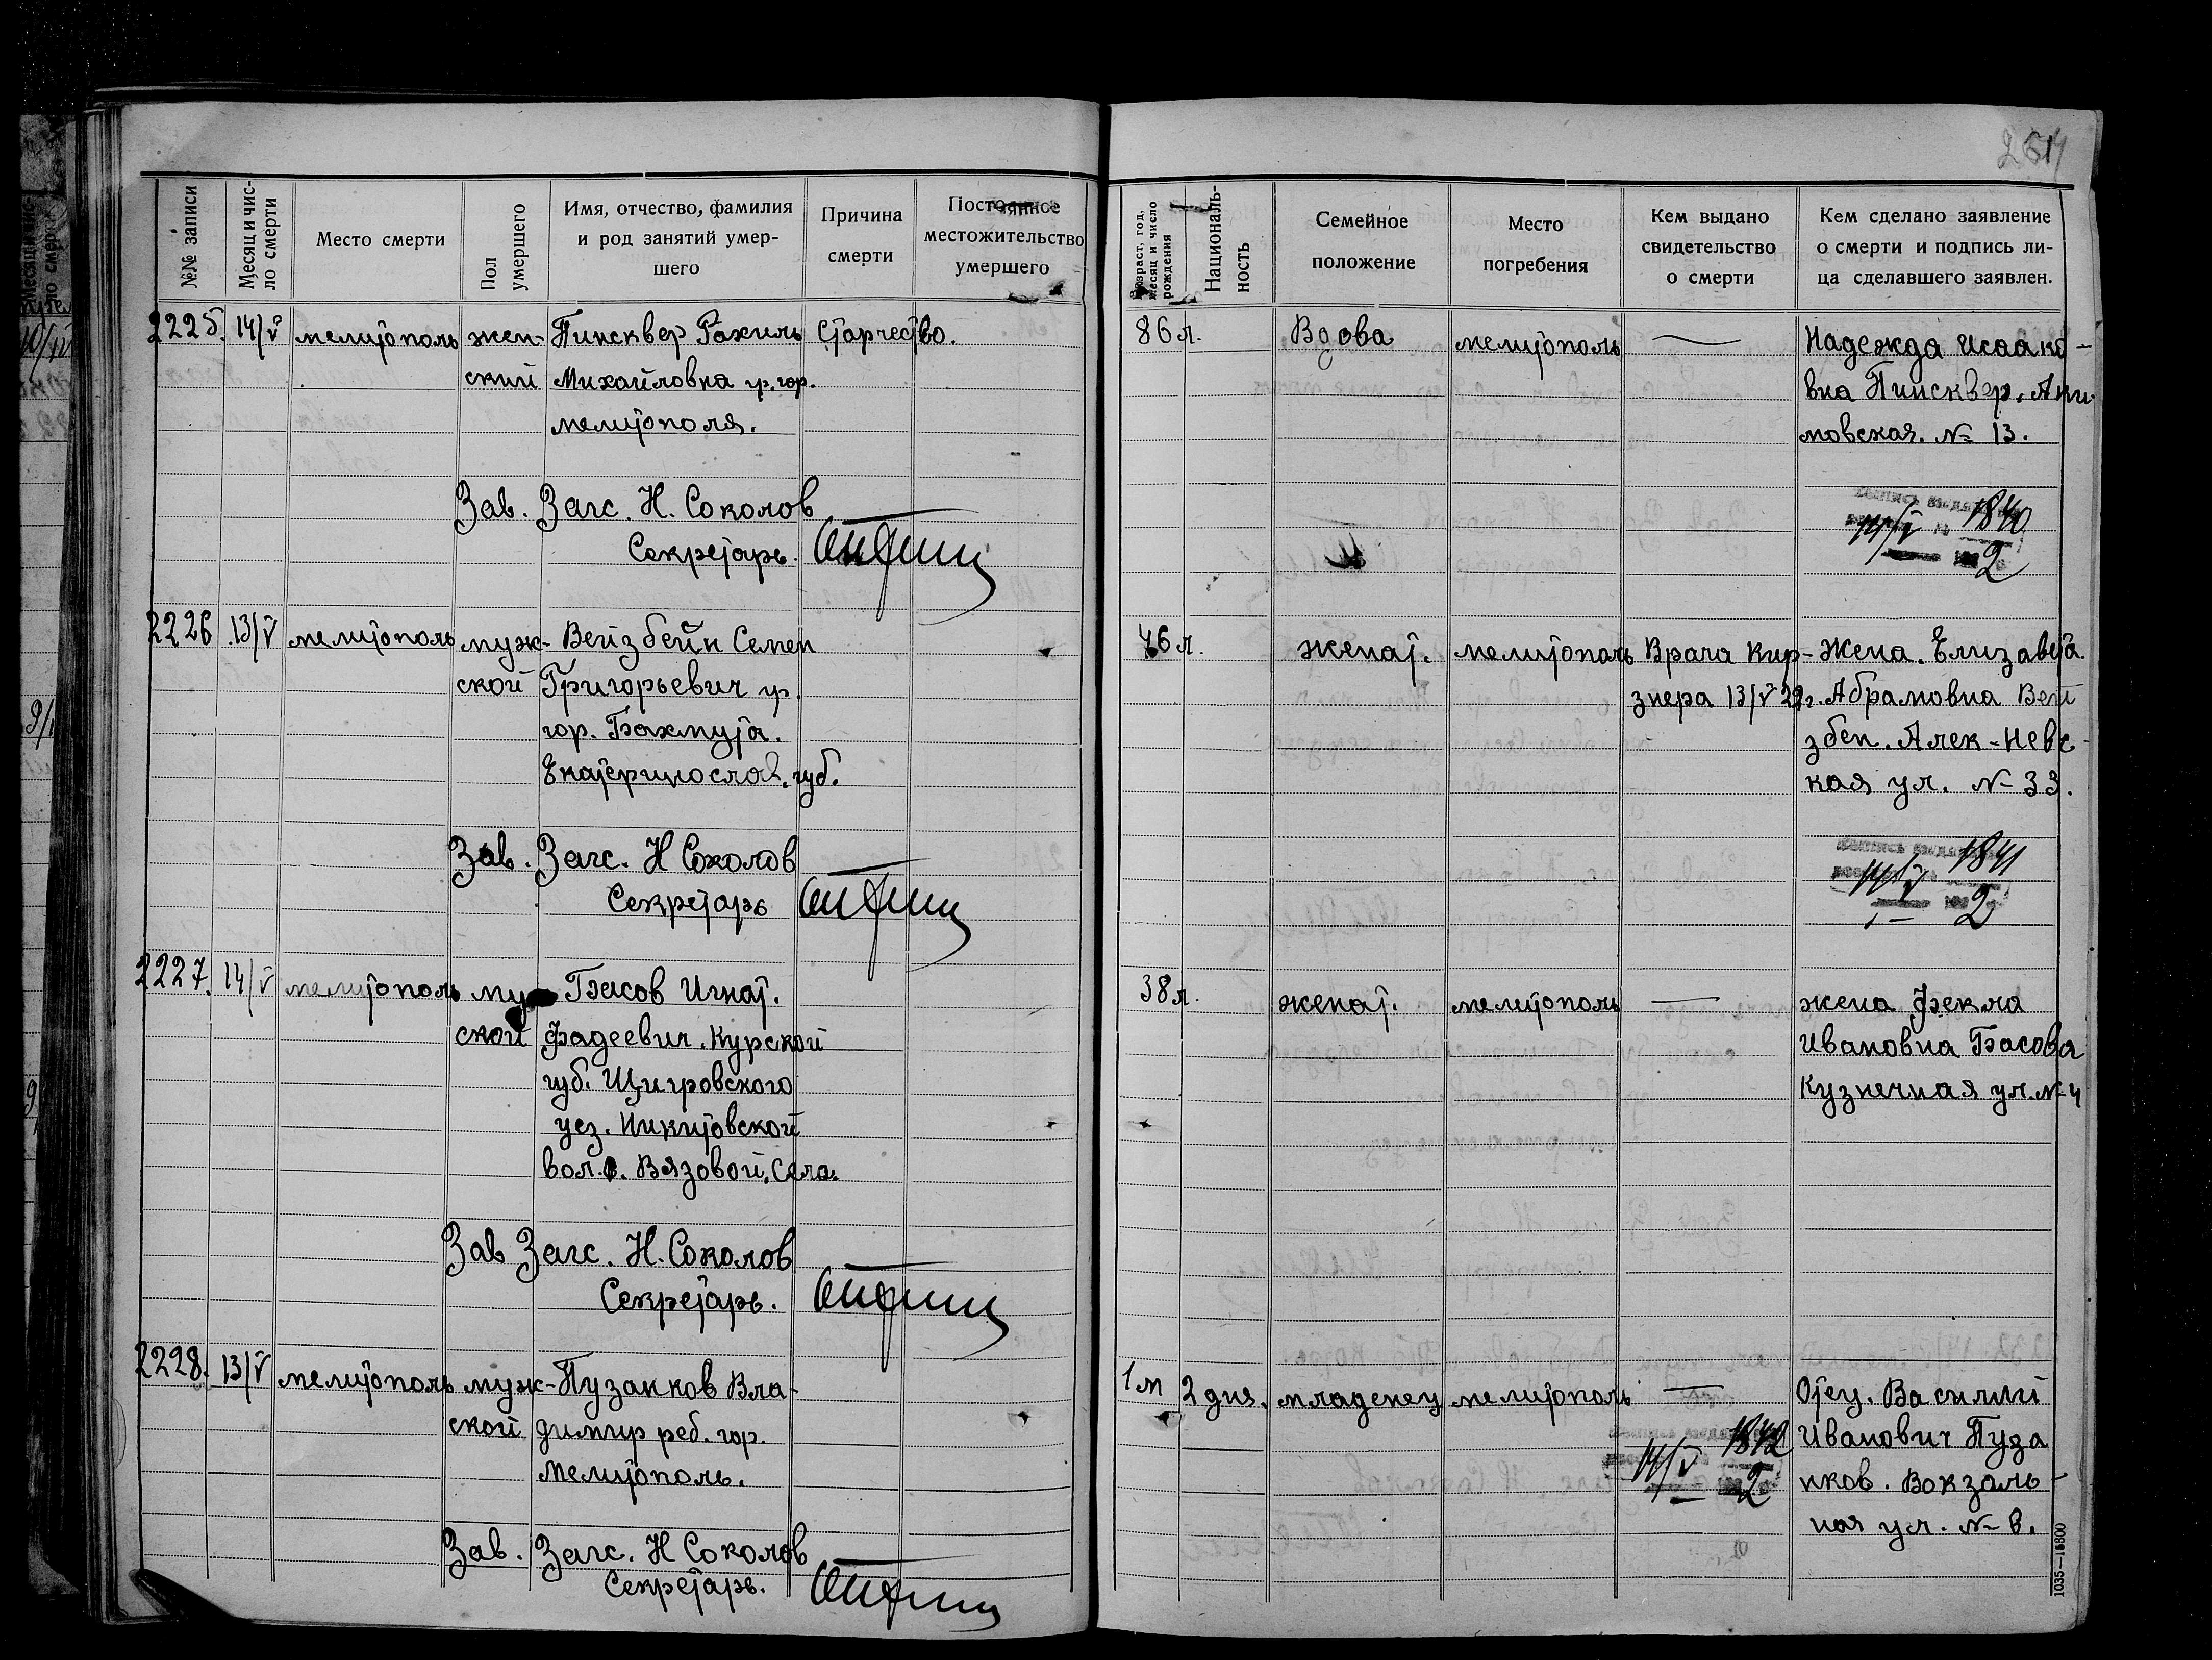 264
№№ записи
Месяц и чис-
ло смерти
Место смерти
Пол
умершего
Имя, отчество, фамилия
и род занятий умер-
шего
Причина
смерти
Постоянное
местожительство
умершего
Возраст, год,
месяц и число
рождения
Националь-
ность
Семейное
положение
Место
погребения
Кем выдано
свидетельство
о смерти
Кем сделано заявление
о смерти и подпись ли-
ца сделавшего заявлен.
2225. 14/V мелитополь жен- Пинсквер Рахиль Старчество. 86 л. Вдова мелитополь — Надежда Исаако-
ский Михайловна гр. гор. вна Пинсквер. Аки-
мелитополя. мовская. № 13.
Зав. Загс. Н. Соколов
Секретарь.
Выпись выдана
14/V № 1840
192 2
2226 13/V мелитополь муж- Вейзбейн Семен 46 л. женат. мелитополь Врача Кир- Жена. Елизавета.
ской Григорьевич гр. знера 13/V 22 г. Абрамовна Вей
гор. Бахмута. збен. Алек-Невс-
Екатеринослав. губ. кая ул. № 33.
Зав. Загс. Н Соколов
Секретарь
Выпись выдана
14/V 1841
192 2
2227. 14/V мелитополь муж Басов Игнат. 38 л. женат. мелитополь — жена Фекла
ской Фадеевич. Курской Ивановна Басова
губ. Щигровского Кузнечная ул. № 4
уез. Никитовской
вол. с. Вязовой, села.
Зав Загс. Н. Соколов
Секретарь.
2228. 13/V мелитополь муж- Пузанков Вла- 1 м 2 дня. младенец мелитополь — Отец. Василий
ской димир реб. гор. Иванович Пуза
Мелитополь. нков. Вокзаль-
ная ул. № 8.
14/V 1842
2
Зав. Загс. Н Соколов
Секретарь.
1035—15800